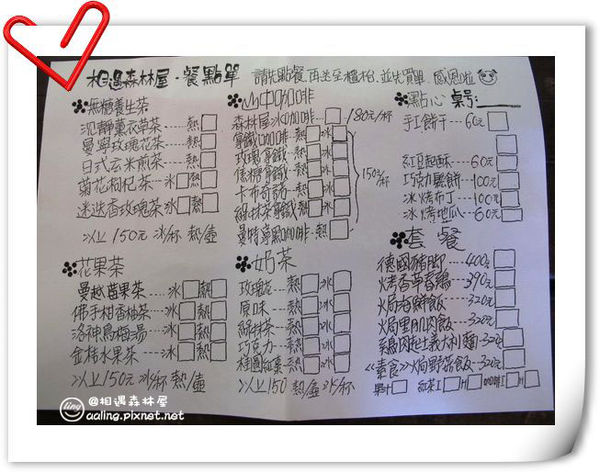 相遇森林屋·餐點單 請先點餐 再送至櫃枱, 並先買單 感恩啦
無糖養生茶
沉靜薰衣草茶----熱
曼寧玫瑰花茶----熱
日式玄米煎茶----熱
菊花枸杞茶--冰 熱
迷迭香玫瑰茶 冰 熱
以上150元 冰/杯 熱/壺
山中咖啡
森林屋冰咖啡 180元/杯
拿鐵咖啡--熱 冰
玫瑰拿鐵--熱 冰
卡布奇諾--熱 冰
綠抹茶拿鐵 熱 冰
曼特寧黑咖啡--熱
150元/杯
點心 桌號:
手工餅干--60元
紅豆起酥----60元
巧克力鬆餅--100元
冰烤布丁--100元
冰烤地瓜--60元
花果茶
曼越莓果茶----冰 熱
佛手柑香柚茶--冰 熱
洛神烏梅湯--冰 熱
金桔水果茶--冰 熱
以上150元 冰/杯 熱/壺
奶茶
玫瑰花--熱 冰
原味----熱 冰
綠抹茶--熱 冰
巧克力--熱 冰
桂圓紅棗--熱 冰
以上150 熱/壺 冰/杯
套餐
德國豬腳----400元
烤香草春雞--390元
焗海鮮飯--320元
焗里肌肉飯--320元
義大利麵--320元
《素食》焗野菇飯--320元
果汁 紅茶 H 咖啡 H
@相遇森林屋
aaling.pixnet.net